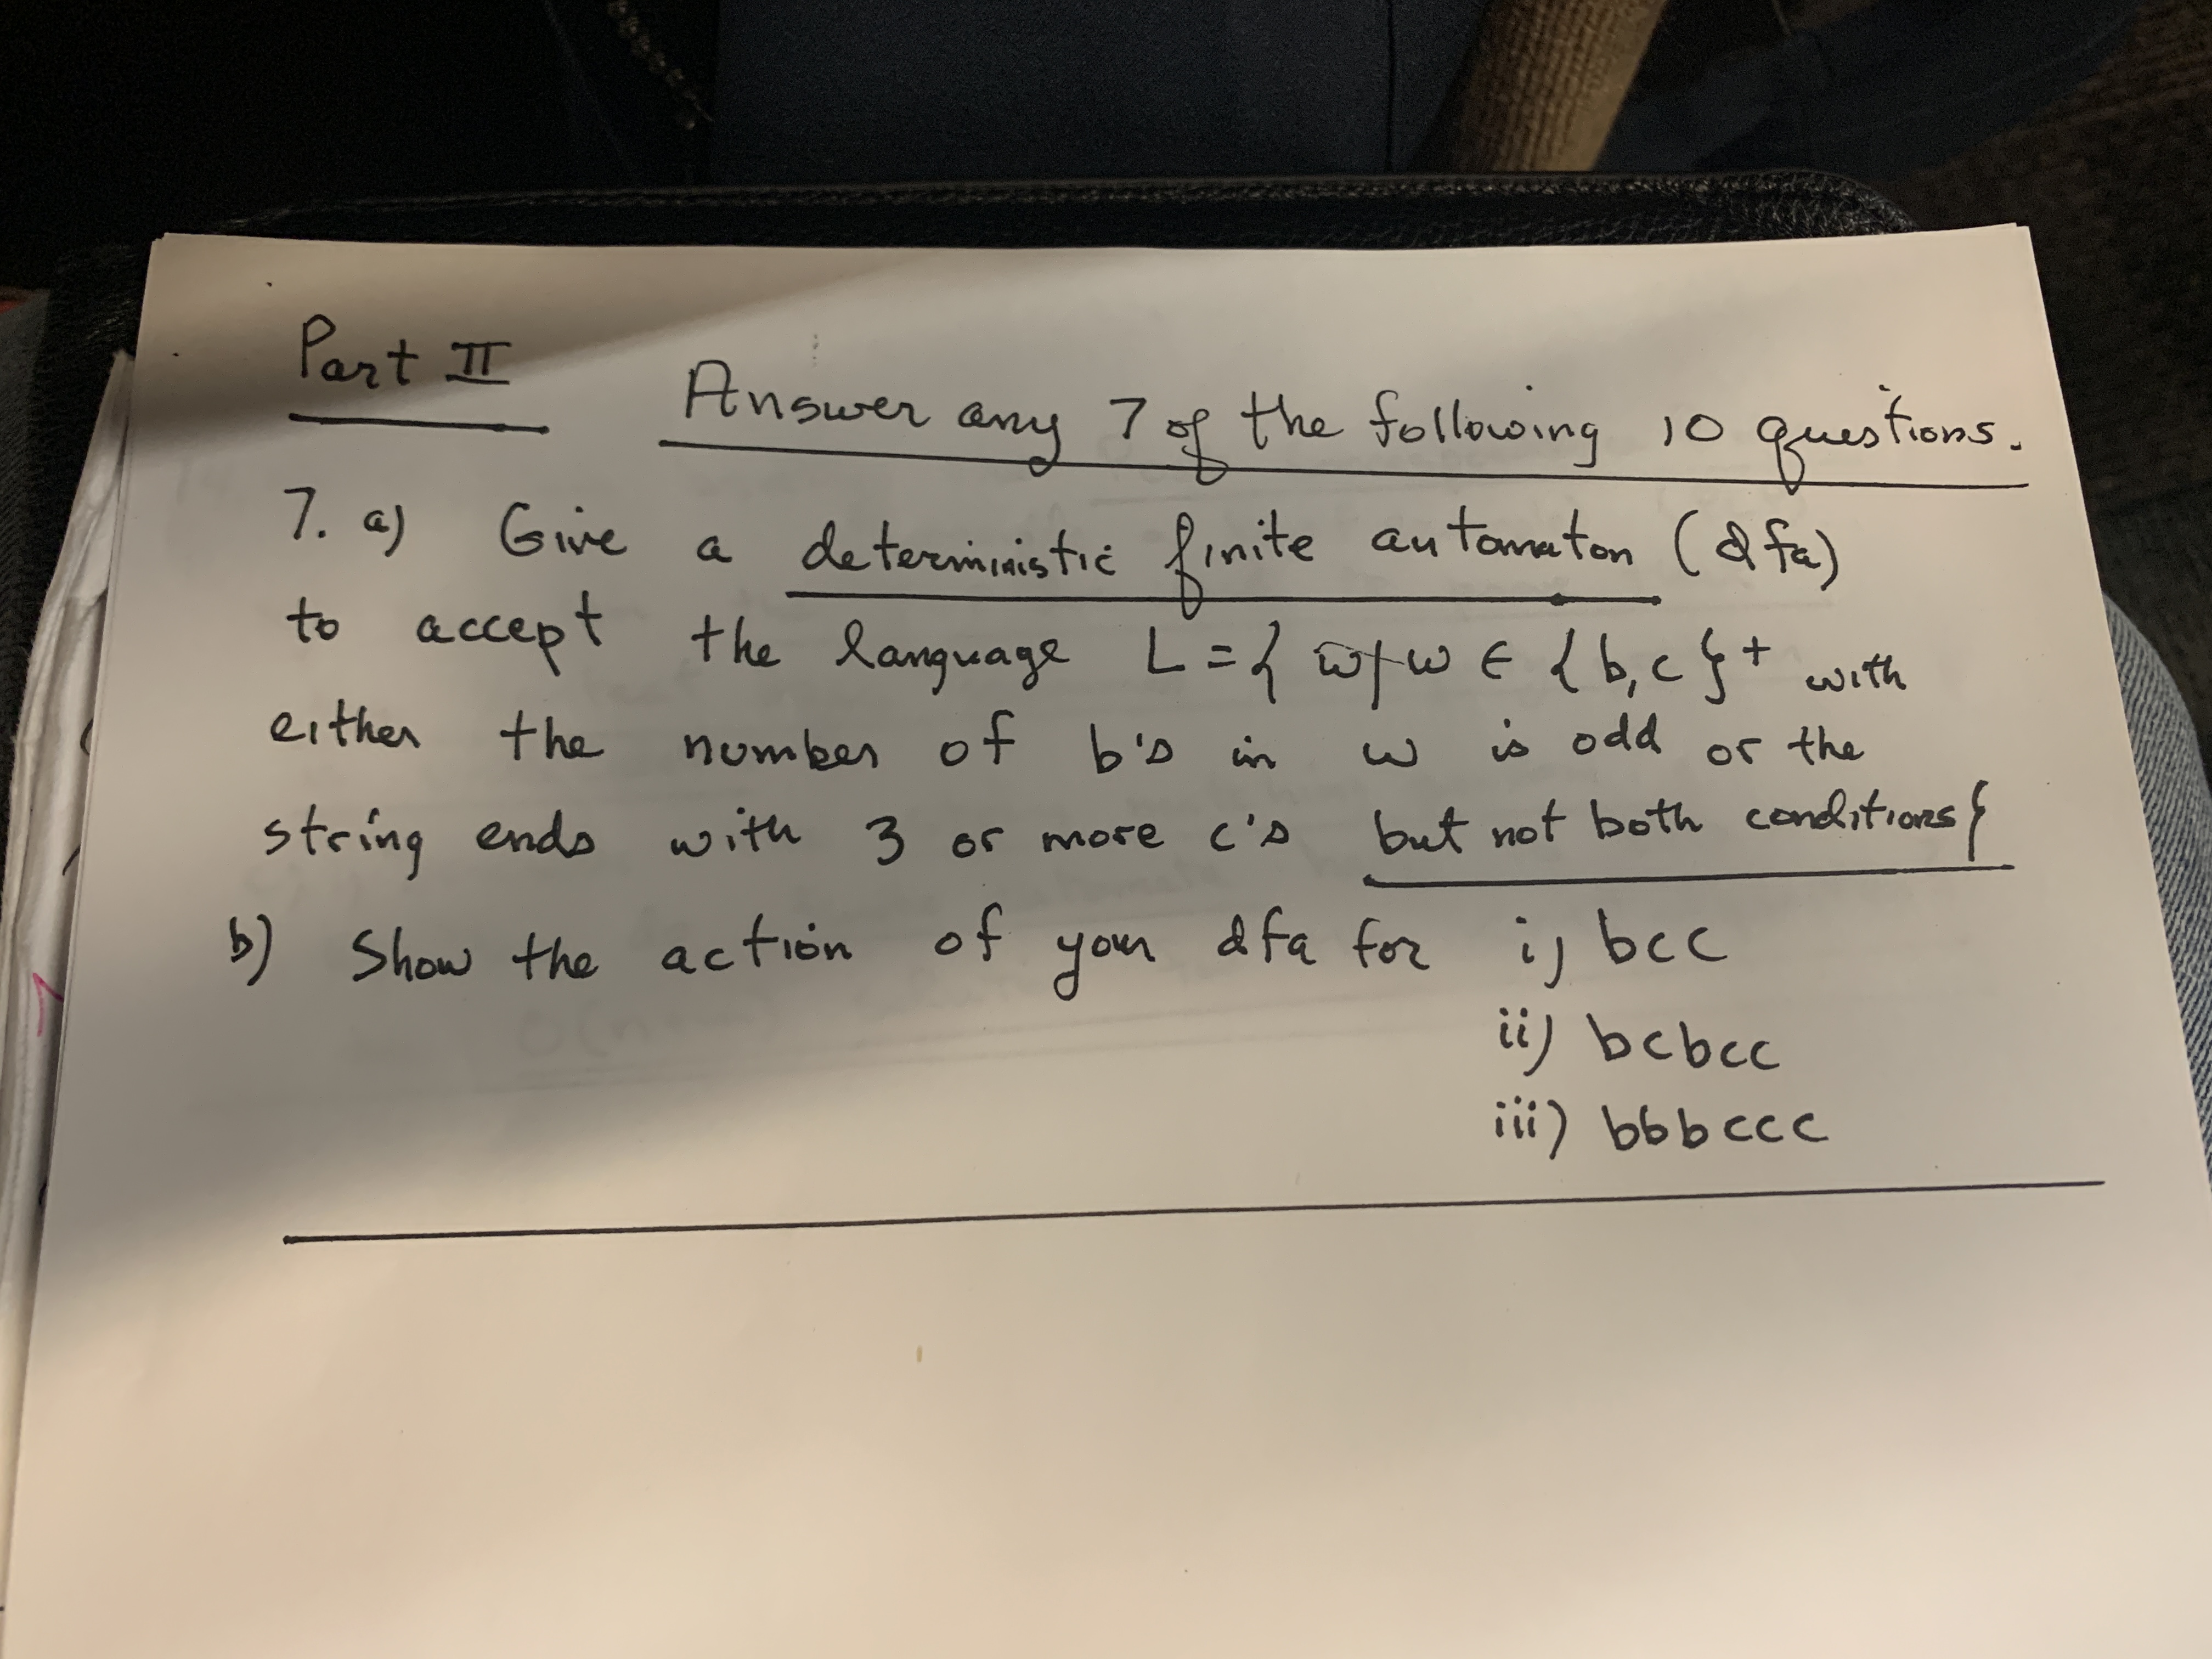 Part II Answer any 7 of the following 10 questions.
7. a) Give a deterministic finite automaton (dfa)
to accept the language L = { w / w ∈ {b,c}+ with
either the number of b's in w is odd or the
string ends with 3 or more c's but not both conditions}
b) Show the action of your dfa for i) bcc
ii) bcbcc
iii) bbbccc